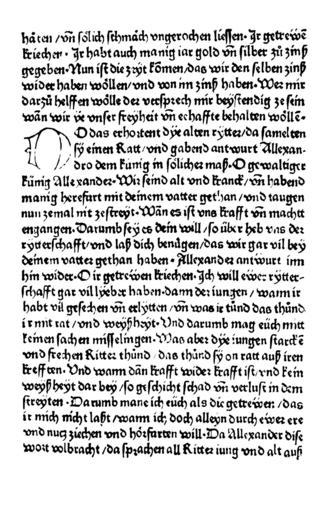 häten / vñ sölich schmäch vngerochen liessen · Ir getrewē
kriechen · Ir habt auch manig iar gold vñ silber zů zinß
gegeben · Nun ist die zeyt kōmen / das wir den selben zinß
wider haben wöllen / vnd von im zinß haben · Wer mir
darzů helffen wölle der versprech mir beystendig ze sein
wān wir ye vnser freyheit vñ erbaffte behalten wöllē ·
DO das erhorent dÿe alten rytter / da sameleten
sÿ einen Ratt / vnd gabend antwurt Allexan⸗
dro dem künig in sölicher maß · O gewaltiger
künig Allexander · Wir seind alt vnd kranck / vñ habend
manig herefart mit deinem vatter gethan / vnd taugen
nun zemal nit ze streyt · Wān es ist vns krafft vñ macht
engangen · Darumb seÿ es dein will / so über heb vns der
rytterschafft / vnd laß dich benügen / das wir gar vil bey
deinem vatter gethan haben · Allexander antwurt im
hin wider · O ir getrewen kriechen · Ich will ewer rytter⸗
schafft gar vil lyeber haben · dann der iungen / wann ir
habt vil gesehen vñ erlytten / vñ was ir tůnd das thůnd
ir mit rat / vnd weyßheyt · Vnd darumb mag eüch mitt
keinen sachen misselingen · Was aber dÿe iungen starckē
vnd frechen Ritter thůnd / das thůnd sÿ on ratt auß iren
krefften · Vnd wann dān krafft wider krafft ist / vnd kein
weyßheyt dar bey / so geschicht schad vñ verlust in dem
streyten · Darumb mane ich eüch als die getrewen / das
ir mich nicht laßt / wann ich doch alleyn durch ewer ere
vnd nucz ziechen vnd hörfarten will · Da Allexander dise
wort volbracht / da sprachen all Ritter iung vnd alt auß